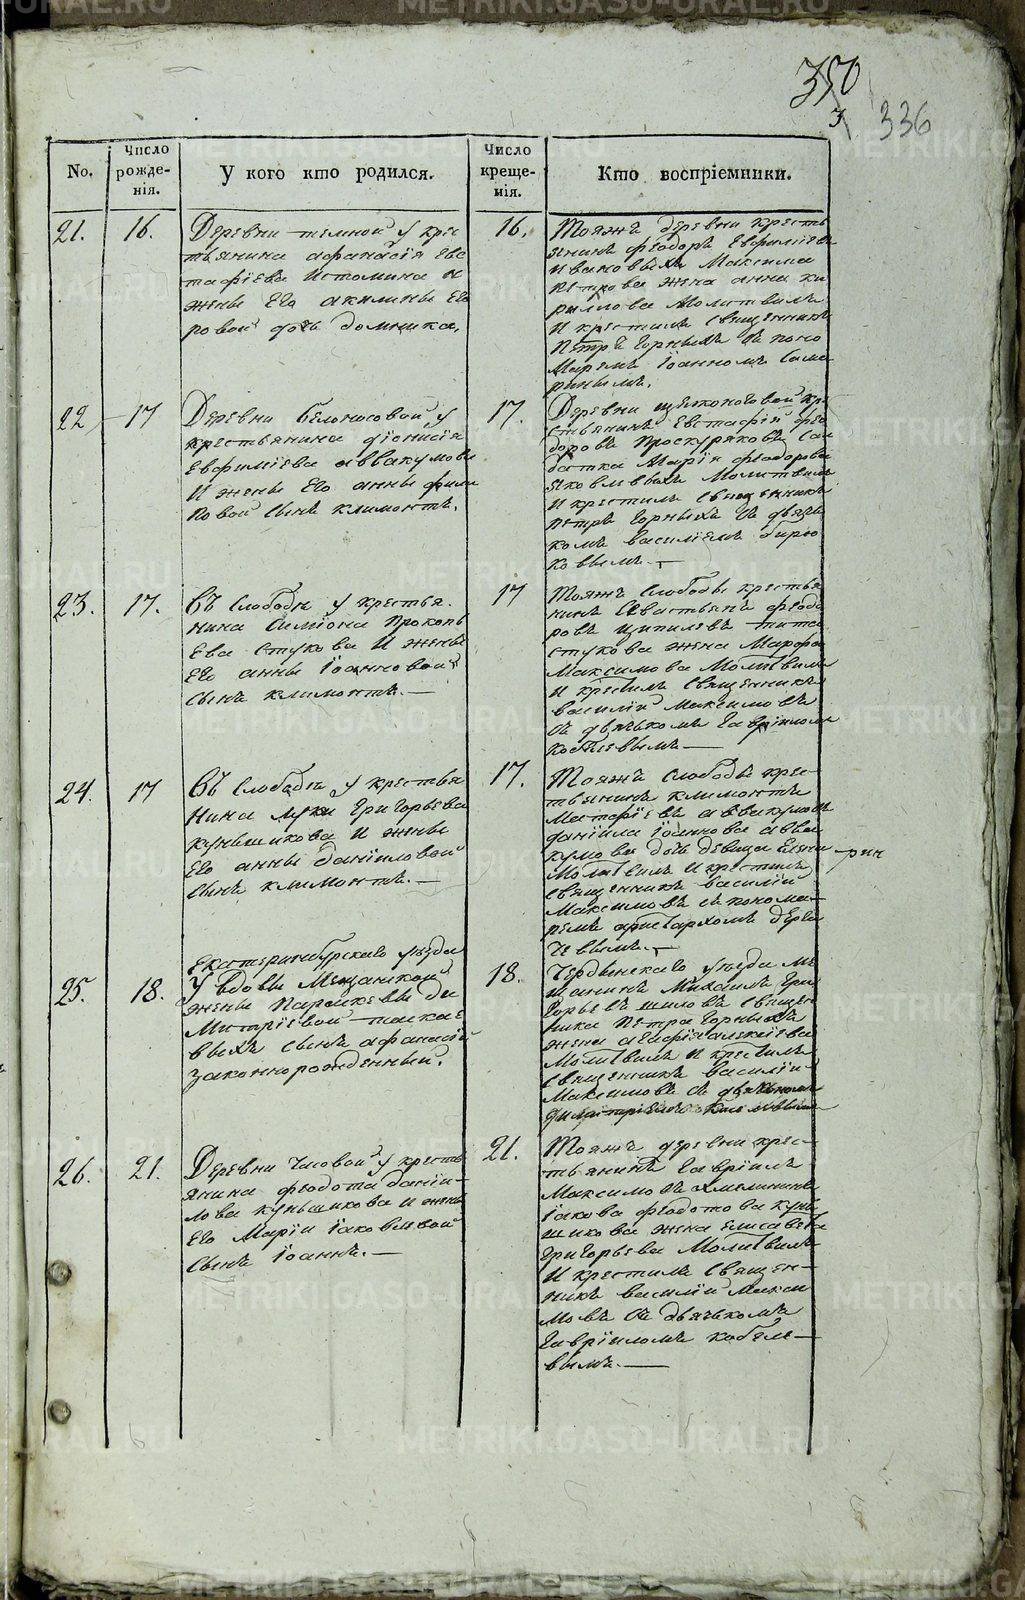 350
3
336
No.
Число рожде-нія.
У кого кто родился.
Число креще-нія.
Кто воспріемники.
21.
16.
Деревни темной у крес
тьянина афанасія Евс
тафіева Истомина и
жены Его акилины Его
ровой дочь домника.
16.
Тояжъ деревни кресть
янинъ феодоръ Евфиміевъ
Ивановыхъ Максима
Петрова жена анна ки
рылова Молитвилъ
И крестилъ священникъ
Петръ Горныхъ съ поно
Маремъ Іоанномъ Сама
ринымъ.
22
17
Деревни белоносовой у
крестьянина діонисія
Евфиміева аввакумова
И жены Его анны фили
повой сынъ климонтъ.
17.
Деревни щелконоговой кре
стьянинъ Евстафій фео
доровъ Проскуряковъ сол
датка Марія феодорова
Яковлевыхъ Молитвилъ
И крестилъ священникъ
Петръ Горныхъ съ дьяч
комъ василіемъ бирю
ковымъ.
23.
17.
Въ слободѣ у крестья
нина Симіона Прокопь
Ева Стукова И жены
Его анны Іоанновой
сынъ климонтъ.
17
Тояжъ слободы крестья
нинъ Савастьянъ феодо
ровъ Ципилевъ тита
стукова жена Марфа
Максимова Молитвилъ
И крестилъ священникъ
василій Максимовъ
съ дьячькомъ Гавріиломъ
24.
17
Въ слободѣ у крестья
Нина луки Григорьева
кунщикова И жены
Его анны Даніиловой
сынъ климонтъ.
17.
Тояжъ слободы крес-
тьянинъ климонтъ
аввакумовъ
даніила Іоаннова авва
кумова дочь девица Елена
Молитвилъ И крестилъ
священникъ василій
Максимовъ съ понома-
ремъ аристархомъ дерга
чевымъ.
25.
18.
Екатеринбурскаго уезда
У вдовы Мещанской
жены Параскевы Ди
Митріевой
выхъ сынъ афанасій
законнорожденный.
18.
Чердынскаго уезда Ме
щанинъ Михаилъ Гри
Горьевъ шиловъ священ
ника Петра Горныхъ
жена алексіева
Молитвилъ И крестилъ
священникъ василій
Максимовъ съ дьячькомъ
26.
21.
Деревни Часовой у кресть
янина феодота даніи-
лова кунщикова и жены
Его Маріи Іаковлевой
сынъ Іоаннъ.
21.
Тояжъ деревни крес-
тьянинъ Гавріилъ
Максимовъ хмелининъ
Іакова феодотова кун
щикова жена Елисавета
Григорьева Молитвилъ
И крестилъ священ-
никъ василій Макси
мовъ съ дьячькомъ
Гавріиломъ кобеле-
вымъ.
METRIKI.GASO-URAL.RU